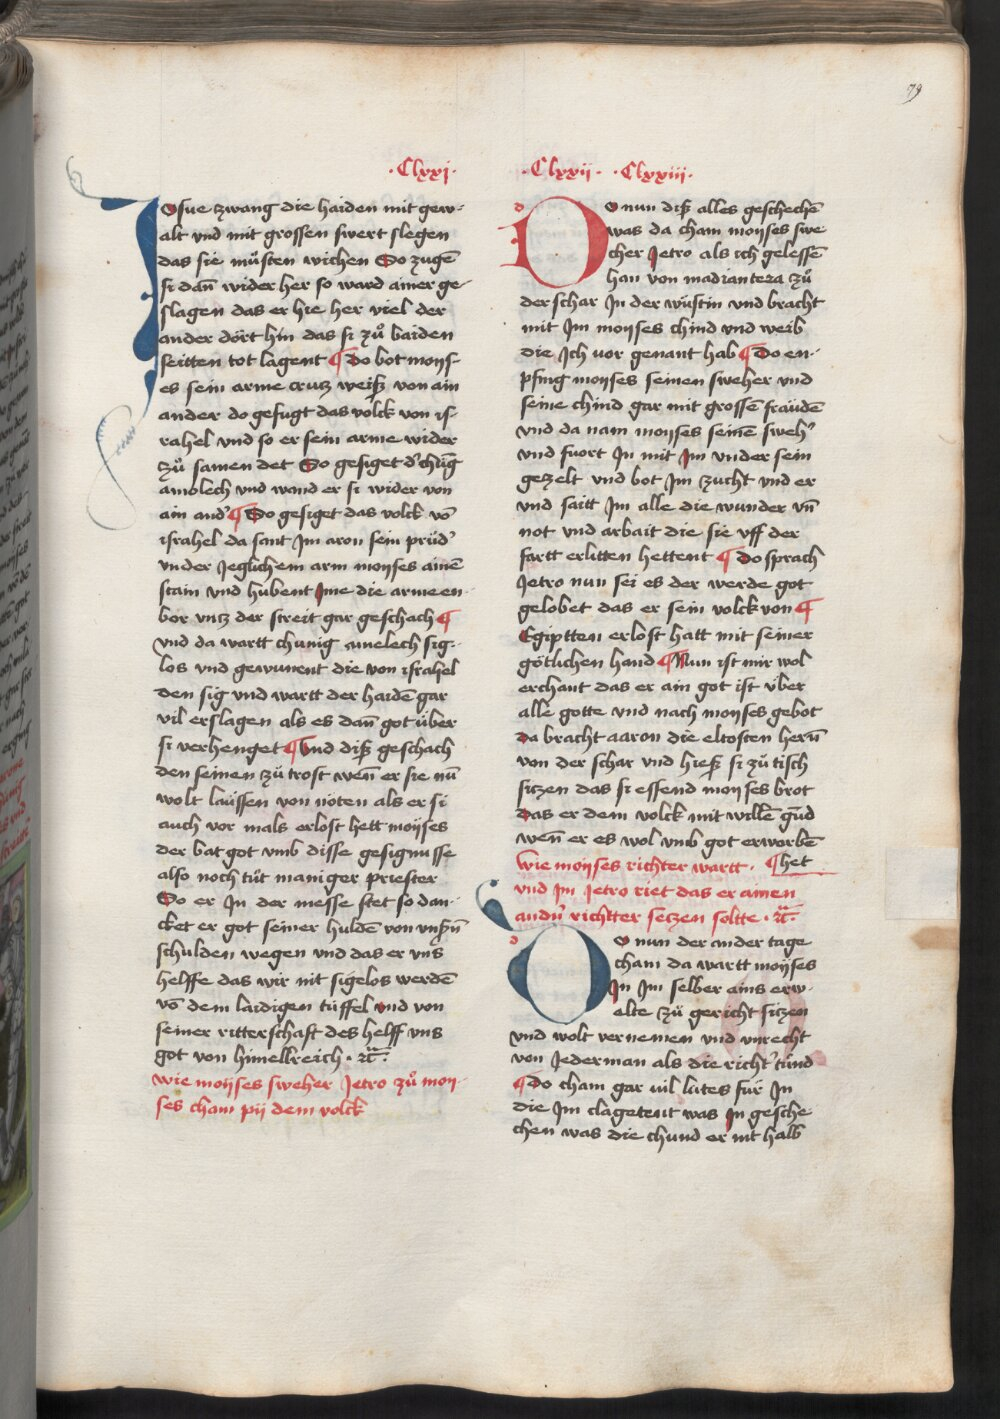 79
·Clxxj·
Josue zwang die haiden mit gew-
alt vnd mit grossen swert slegen
das sie müsten wichen Do zugē
si dañ wider her so ward ainer ge-
slagen das er hie her viel der
ander dört hin das si zů baiden
seitten tot lagent ¶ Do bot moys-
es sein arme crutz weiß von ain
ander do gesigt das volck von is-
rahel vnd so er sein arme wider
zů samen det So gesiget d' chüg
amolech vnd wand er si wider von
ain and' ¶ So gesiget das volck vō
israhel da sant Jm aron sein prüd'
vnder Jeglichem arm moyses ainē
stain vnd hübent Jme die arme en-
bor vntz der streit gar geschach ¶
vnd da wartt chunig amelech sig-
los vnd gewunent die von israhel
den sig vnd wartt der haidē gar
vil erslagen als es dañ got über
si verhenget ¶ Vnd diß geschach
den seinen zü trost weñ er sie nü
wolt laüssen von nöten als er si
auch vor mals erlost hett moyses
der bat got vmb disse gesignusse
also noch tüt maniger priester
So er Jn der messe stet so dan-
cket er got seiner huldē von vnßn̄
schulden wegen vnd das er vns
helffe das wir nit sigelos werdē
vō dem laidigen tüffel vnd von
seiner ritterschaft des helff vns
got von himellreich · ꝛc̄·
wie moyses sweher Jetro zů moy-
ses cham pij dem volck
·Clxxii· ·Clxxiii·
Do nun diß alles geschechē
was da cham moyses swe
cher Jetro als ich gelessē
han von madiantera zů
der schar Jn der wüstin vnd bracht
mit Jm moyses chind vnd weib
die Jch vor genant hab ¶ Do en-
pfing moyses seinen sweher vnd
seine chind gar mit grossē fräüdē
vnd da nam moyses seinē sweh'
vnd fuort Jn mit Jm vnder sein
gezelt vnd bot Jm zucht vnd er
vnd saitt Jm alle die wunder vñ
not vnd arbait die sie vff der
fartt erlitten hettent ¶ Do sprach
Jetro nun sei es der werde got
gelobet das er sein volck von ¶
Egiptten erlost hatt mit seiner
götlichen hand ¶ Nun ist mir wol
erchant das er ain got ist über
alle gotte vnd nach moyses gebot
da bracht aaron die eltosten herñ
von der schar vnd hieß si zü tisch
sitzen das si essend moyses brot
das er dem volck mit willē gūd
weñ er es wol vmb got erworbē
wie moyses richter wartt · ¶ het
vnd Jm Jetro riet das er ainen
andñ richtter setzen soltte · ꝛc̄·
Do nun der ander tage
cham da wartt moyses
Jn Jm selber ains erw-
elte zü gericht sitzen
vnd wolt vernemen vnd vnrecht
von Jederman als die richt' tünd
¶ Do cham gar vil lütes für Jn
die Jm clagetent was Jn gesche
chen was die chund er nit halb